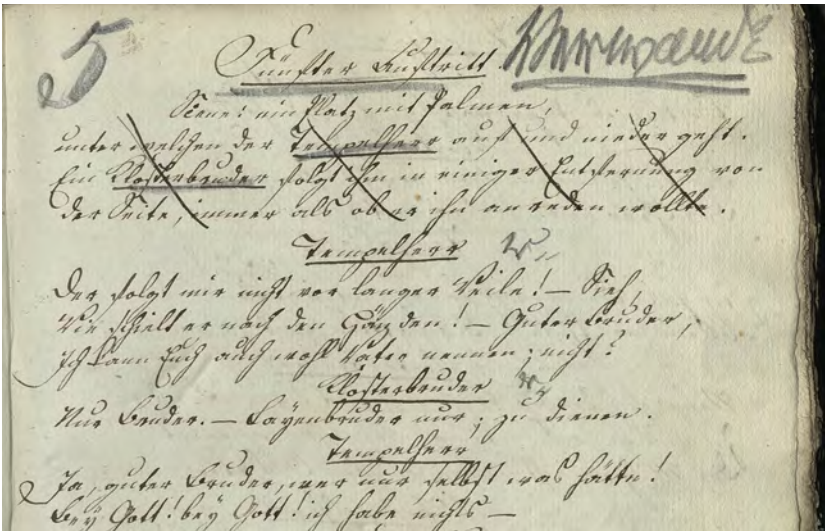 5
Fünfter Auftritt.
Scene: ein Platz mit Palmen,
unter welchen der Tempelherr auf und nieder geht.
Ein Klosterbruder folgt ihm in einiger Entfernung von
der Seite, immer als ob er ihn anreden wollte.
Tempelherr
Der folgt mir nicht vor langer Weile! — Sieh,
Wie schielt er nach den Händen! — Guter Bruder,
Ich kann Euch auch wohl Vater nennen; nicht?
Klosterbruder
Nur Bruder. — Layenbruder nur; zu dienen.
Tempelherr
Ja, guter Bruder, wer nur selbst was hätte!
Bey Gott! bey Gott! ich habe nichts —